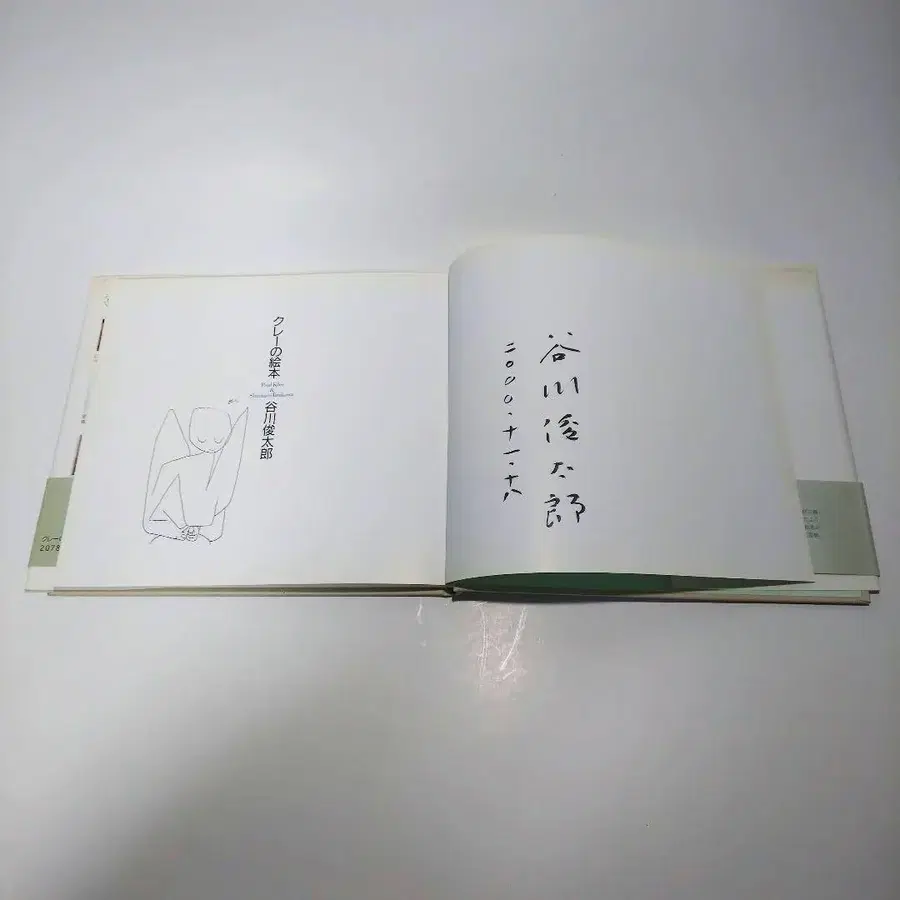 谷川俊太郎
二〇〇〇.十一.十八
クレーの絵本
Paul Klee
&
Shuntaro Tanikawa
谷川俊太郎
クレー
2078